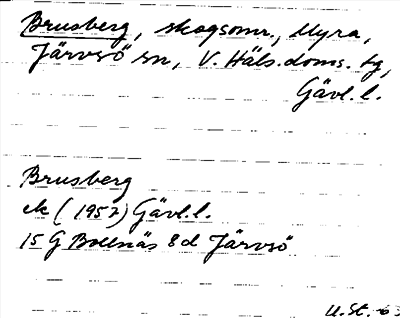 Brusberg, skogsomr., Myra,
Järvsö sn, V. Häls. doms. tg,
Gävl. l.
Brusberg
ek (1952) Gävl. l.
15 G Bollnäs 8d Järvsö
U. St. 63